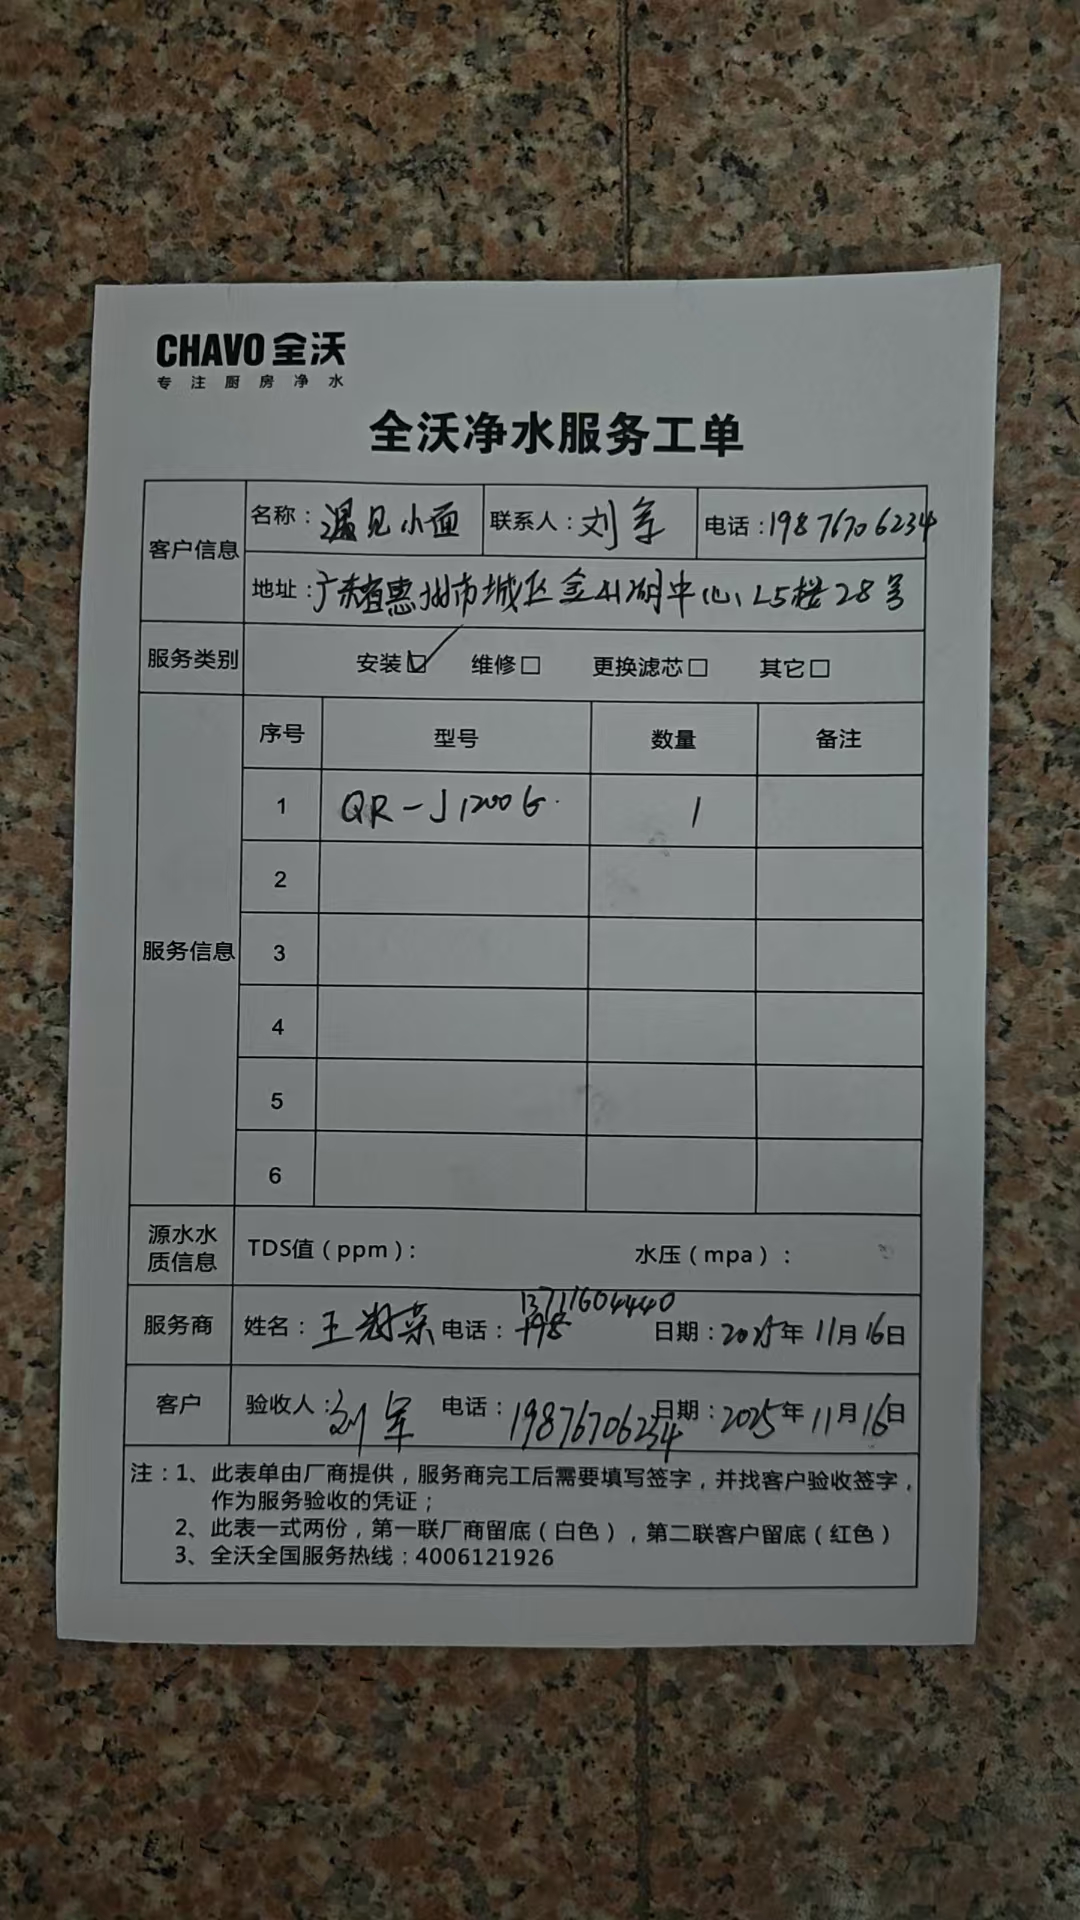 CHAVO 全沃
专注厨房净水
全沃净水服务工单
客户信息 名称：遇见小面 联系人：刘军 电话：19876706234
地址：广东省惠州市城区金山湖中心L5楼28号
服务类别 安装☑ 维修□ 更换滤芯□ 其它□
服务信息 序号 型号 数量 备注
1 QR-J1200G 1
2
3
4
5
6
源水水质信息 TDS值（ppm）： 水压（mpa）：
13711604440
服务商 姓名：王 荣 电话： 日期：2025年11月16日
客户 验收人：刘军 电话：19876706234 日期：2025年11月16日
注：1、此表单由厂商提供，服务商完工后需要填写签字，并找客户验收签字，
作为服务验收的凭证；
2、此表一式两份，第一联厂商留底（白色），第二联客户留底（红色）
3、全沃全国服务热线：4006121926